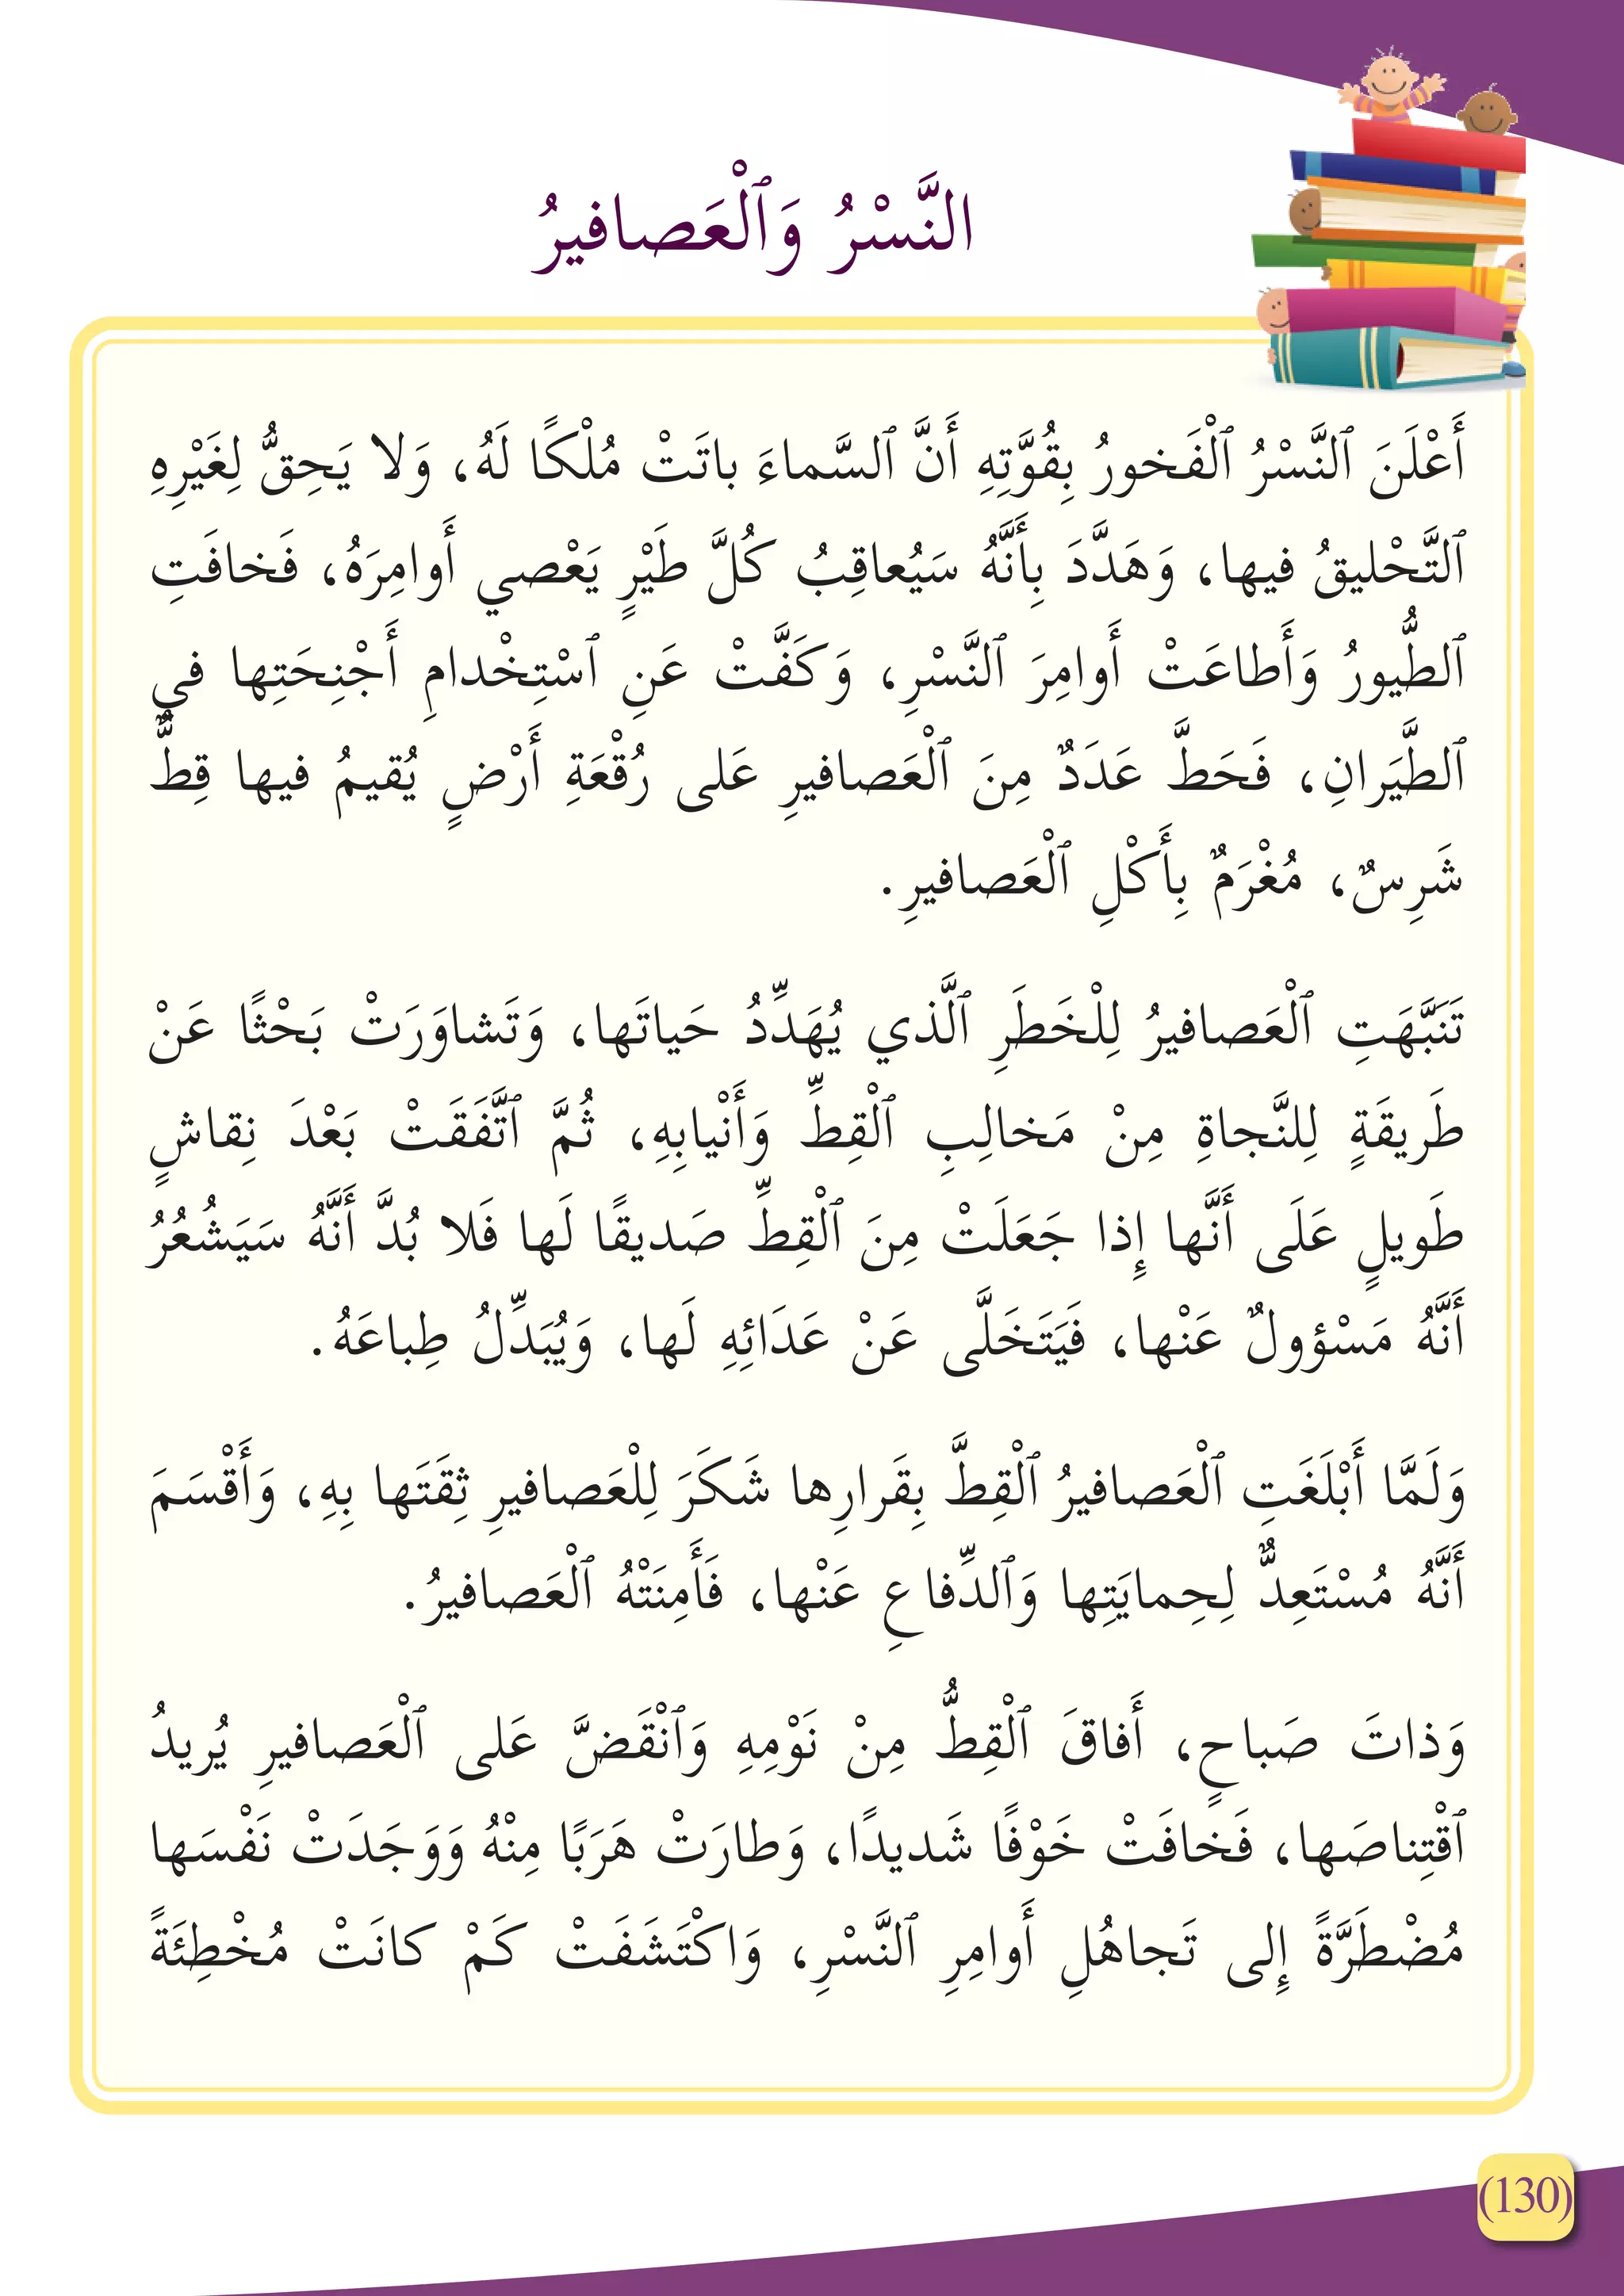 النَّسْرُ وَٱلْعَصافيرُ
أَعْلَنَ ٱلنَّسْرُ ٱلْفَخورُ بِقُوَّتِهِ أَنَّ ٱلسَّماءَ باتَتْ مُلْكًا لَهُ، وَلا يَحِقُّ لِغَيْرِهِ
ٱلتَّحْليقُ فيها، وَهَدَّدَ بِأَنَّهُ سَيُعاقِبُ كُلَّ طَيْرٍ يَعْصي أَوامِرَهُ، فَخافَتِ
ٱلطُّيورُ وَأَطاعَتْ أَوامِرَ ٱلنَّسْرِ، وَكَفَّتْ عَنِ ٱسْتِخْدامِ أَجْنِحَتِها في
ٱلطَّيَرانِ، فَحَطَّ عَدَدٌ مِنَ ٱلْعَصافيرِ عَلى رُقْعَةِ أَرْضٍ يُقيمُ فيها قِطٌّ
شَرِسٌ، مُغْرَمٌ بِأَكْلِ ٱلْعَصافيرِ.
تَنَبَّهَتِ ٱلْعَصافيرُ لِلْخَطَرِ ٱلَّذي يُهَدِّدُ حَياتَها، وَتَشاوَرَتْ بَحْثًا عَنْ
طَريقَةٍ لِلنَّجاةِ مِنْ مَخالِبِ ٱلْقِطِّ وَأَنْيابِهِ، ثُمَّ ٱتَّفَقَتْ بَعْدَ نِقاشٍ
طَويلٍ عَلَى أَنَّها إِذا جَعَلَتْ مِنَ ٱلْقِطِّ صَديقًا لَها فَلا بُدَّ أَنَّهُ سَيَشْعُرُ
أَنَّهُ مَسْؤولٌ عَنْها، فَيَتَخَلَّى عَنْ عَدَائِهِ لَها، وَيُبَدِّلُ طِباعَهُ.
وَلَمَّا أَبْلَغَتِ ٱلْعَصافيرُ ٱلْقِطَّ بِقَرارِها شَكَرَ لِلْعَصافيرِ ثِقَتَها بِهِ، وَأَقْسَمَ
أَنَّهُ مُسْتَعِدٌّ لِحِمايَتِها وَٱلدِّفاعِ عَنْها، فَأَمِنَتْهُ ٱلْعَصافيرُ.
وَذاتَ صَباحٍ، أَفاقَ ٱلْقِطُّ مِنْ نَوْمِهِ وَٱنْقَضَّ عَلى ٱلْعَصافيرِ يُريدُ
ٱقْتِناصَها، فَخافَتْ خَوْفًا شَديدًا، وَطارَتْ هَرَبًا مِنْهُ وَوَجَدَتْ نَفْسَها
مُضْطَرَّةً إِلى تَجاهُلِ أَوامِرِ ٱلنَّسْرِ، وَاكْتَشَفَتْ كَمْ كانَتْ مُخْطِئَةً
(130)